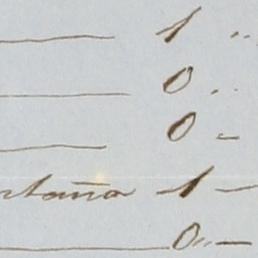 1 "
0 "
0 -
ntaña - 1 -
0 " -